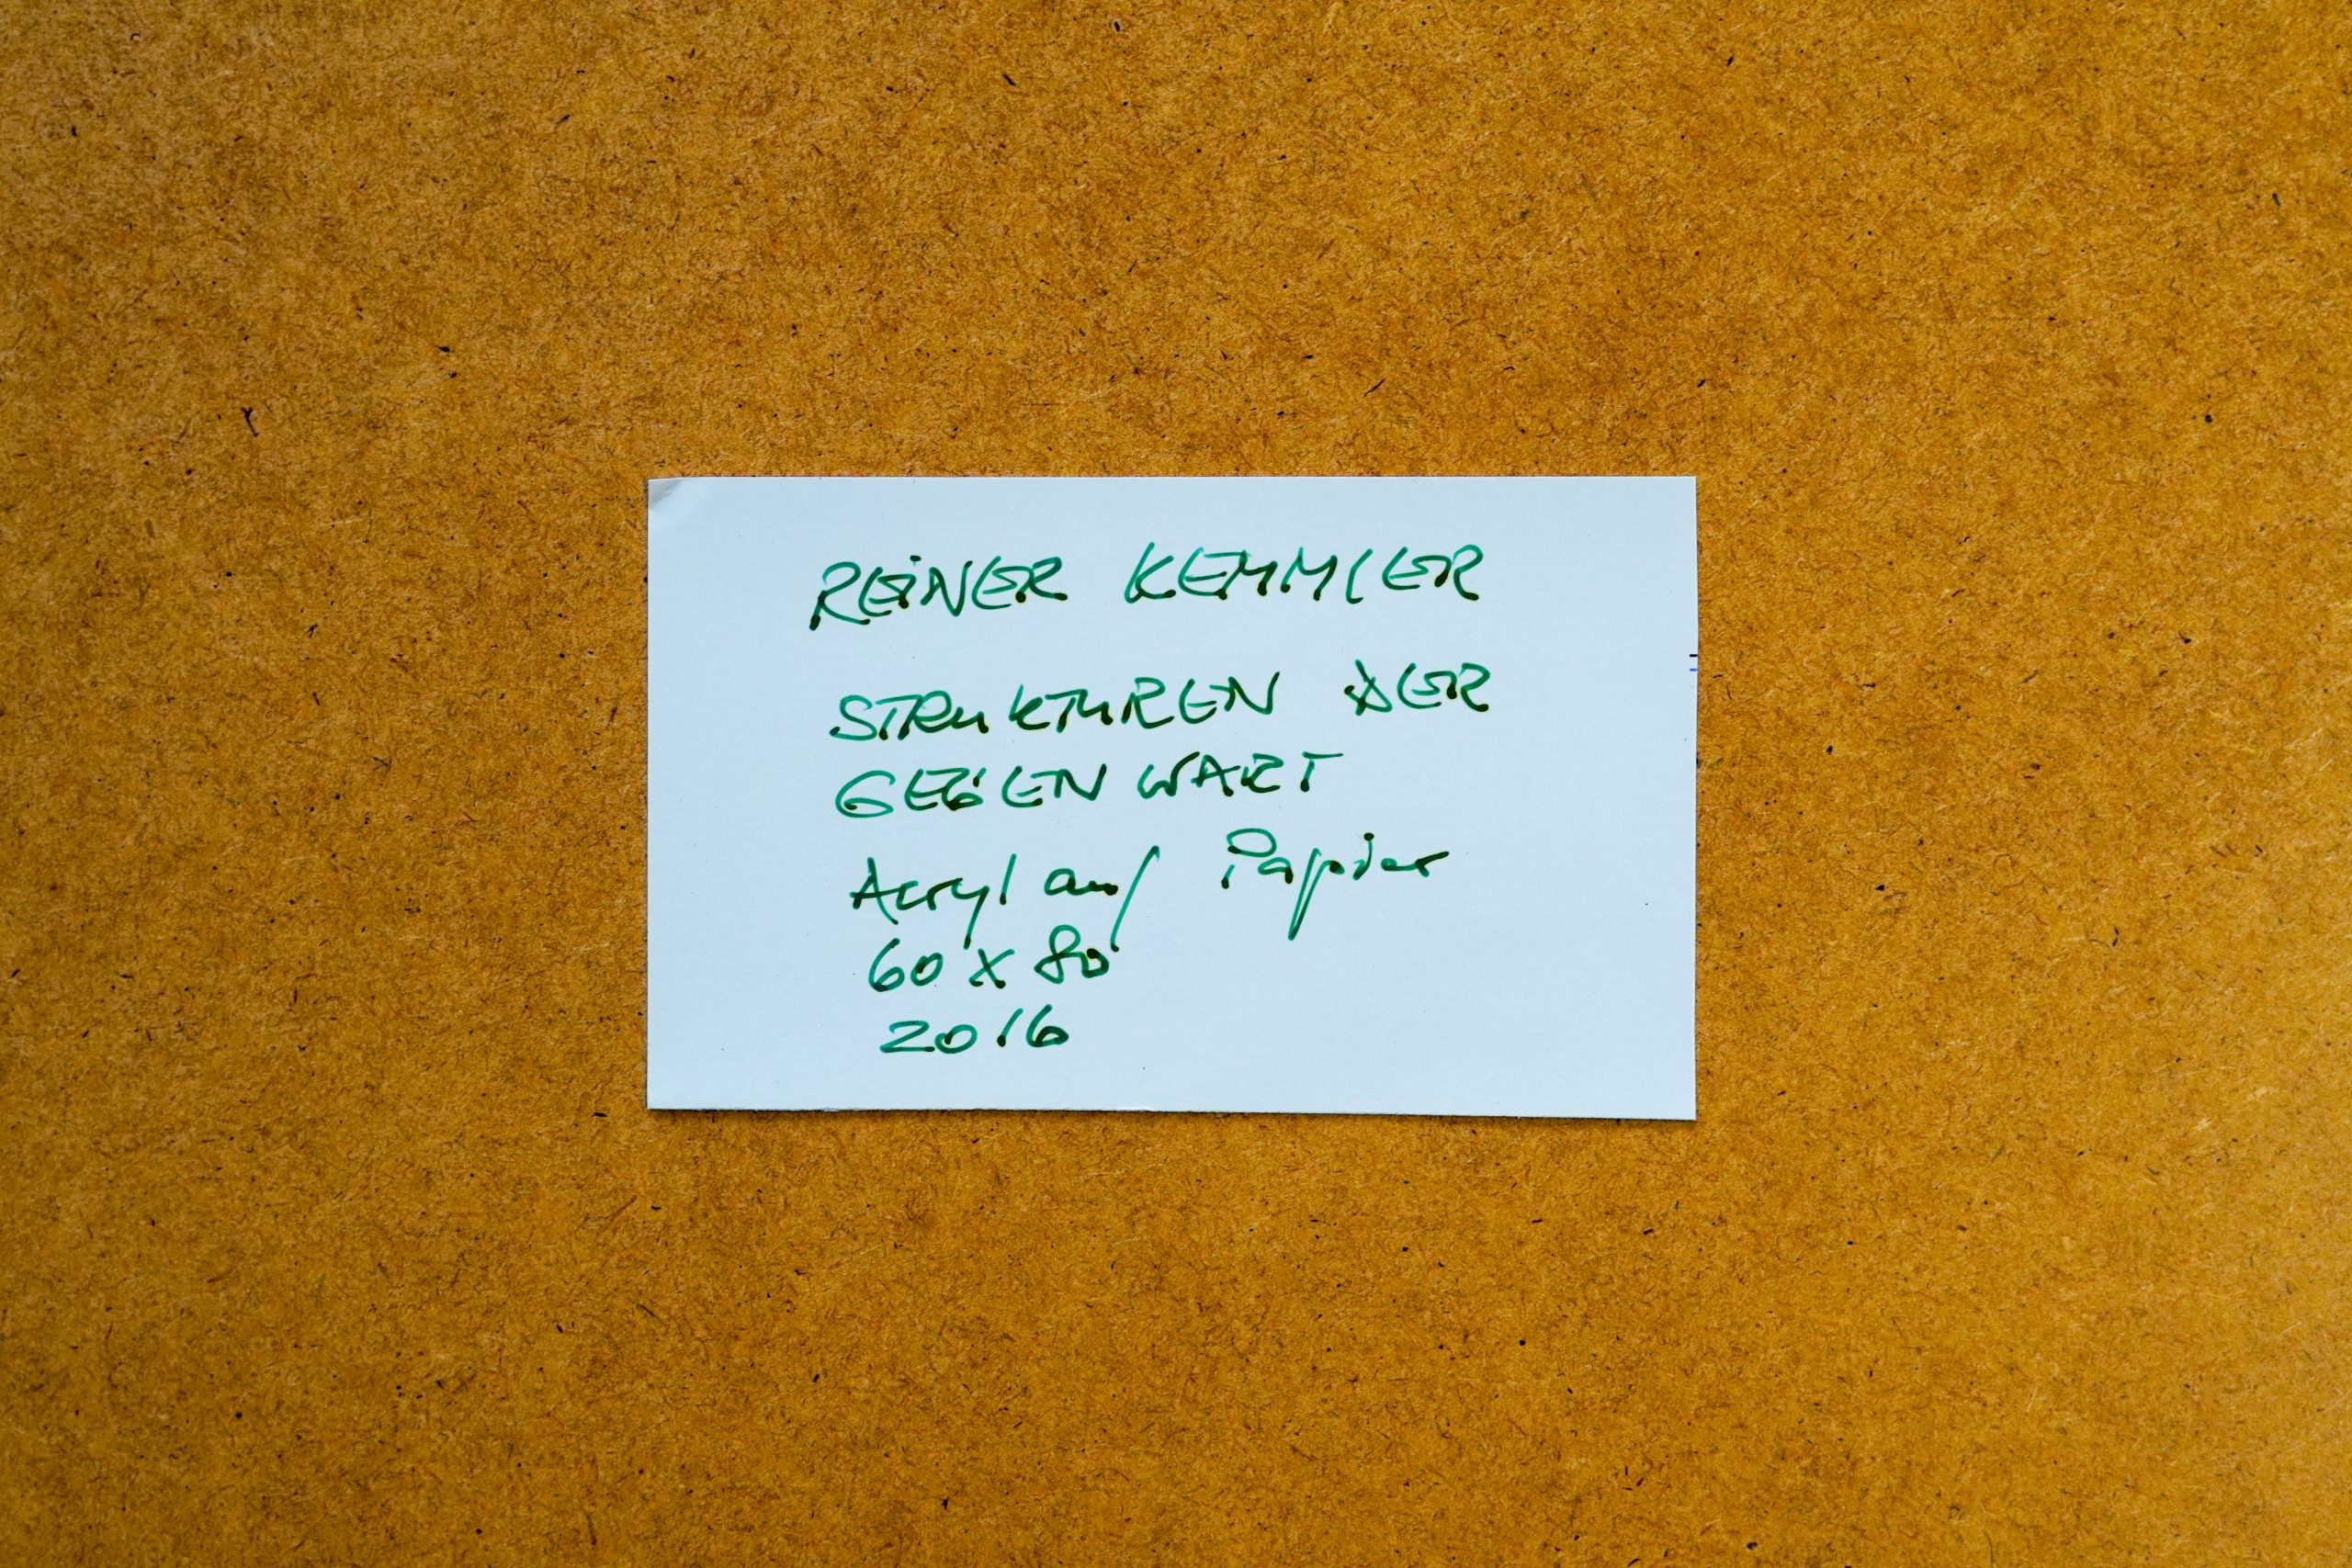 REINER KEMMLER
STRUKTUREN DER
GEGENWART
Acryl auf Papier
60 x 80
2016